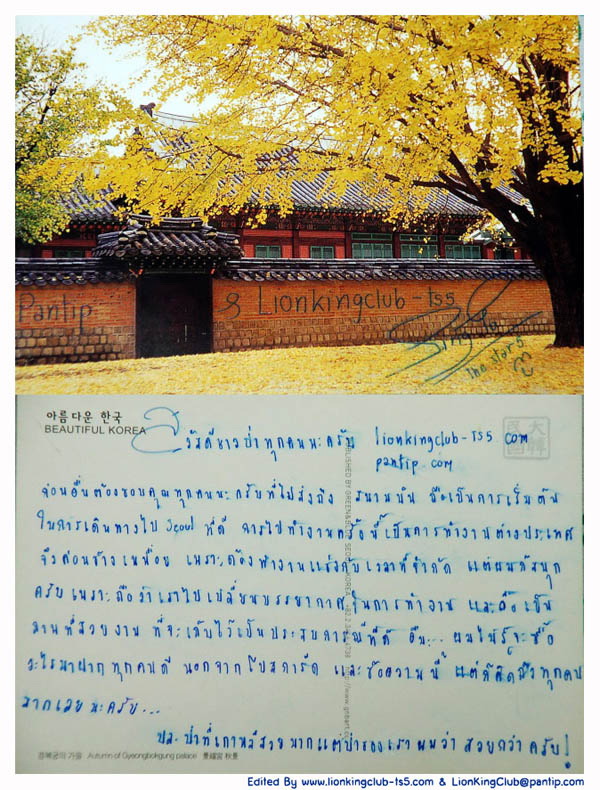 Pantip & Lionkingclub-ts5
Singto
The Star5
아름다운 한국
BEAUTIFUL KOREA
大韓民国
สวัสดีชาวป่าทุกคนนะครับ lionkingclub-ts5.com
pantip.com
ก่อนอื่นต้องขอบคุณทุกคนนะครับที่ไปส่งถึง สนามบิน ถือเป็นการเริ่มต้น
ในการเดินทางไป Seoul ที่ดี การไปทำงานครั้งนี้เป็นการทำงานต่างประเทศ
จึงค่อนข้างเหนื่อย เพราะต้องทำงานแข่งกับเวลาที่จำกัด แต่ผมก็สนุก
ครับ เพราะถือว่าเราไปเปลี่ยนบรรยากาศในการทำงาน และถือเป็น
งานที่สวยงาม ที่จะเก็บไว้เป็นประสบการณ์ที่ดี อืม... ผมไม่รู้จะซื้อ
อะไรมาฝากทุกคนดี นอกจากโปสการ์ด และข้อความนี้ แต่ก็คิดถึงทุกคน
มากเลยนะครับ...
ปล. ป่าที่เกาหลีสวยมากแต่ป่าของเราผมว่า สวยกว่าครับ!
경복궁의 가을 Autumn of Gyeongbokgung palace 景福宮 秋景
Edited By www.lionkingclub-ts5.com & LionKingClub@pantip.com